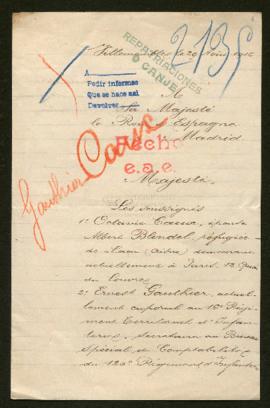 213S
REPATRIACIONES
O CANJE
A
Pedir informes
Que se hace así
Devolver
Sa Majesté
le Roi Espagne
Madrid
Hecho
e.a.e.
Gauthier Causs
Majesté,
Les soussignés
1º Octavie épouse
Albert Blondel, réfugiée
de Laon (Aisne) demeurant
actuellement à Paris. 12 Quai
du Louvre
2º Ernest Gauthier, actuel-
lement caporal au 10e Régi-
ment Territorial d'Infan-
terie, secrétaire au Bureau
Spécial de Comptabilité
du 123e Régiment d'Infanterie